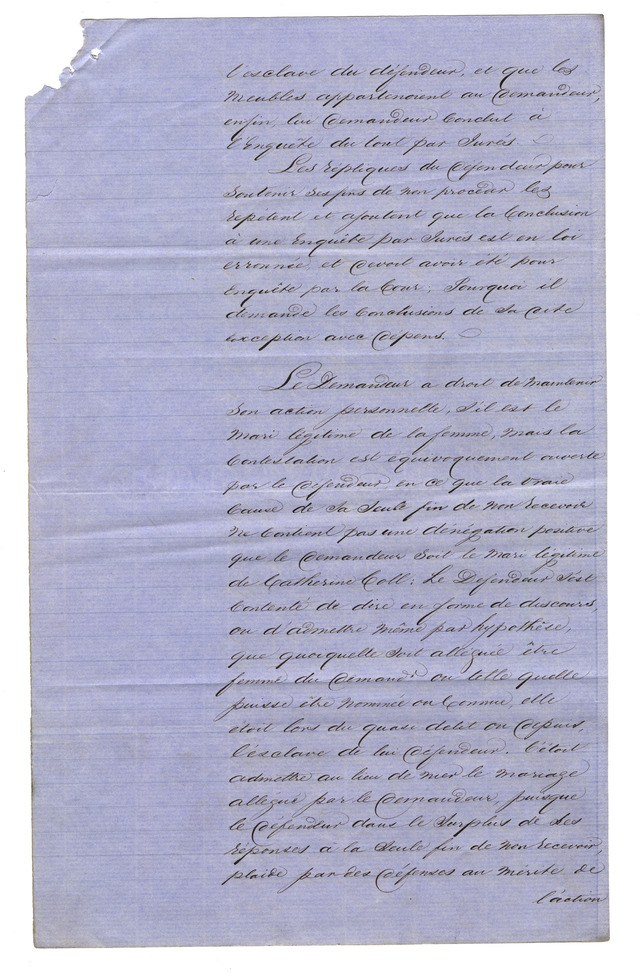 l'esclave du défendeur, et que les
Meubles appartenoient au Demandeur,
enfin, lui Demandeur Conclut à
l'Enquête du tout par Jurés.
Les répliques du Défendeur pour
Soutenir Ses fins de non procéder les
répétent et ajoutent que la Conclusion
à une Enquête par Jurés est en loi
erronnée, et devoit avoir été pour
Enquête par la Cour; Pourquoi il
demande les Conclusions de Sa dite
exception avec dépens.
Le Demandeur a droit de Maintenir
Son action personnelle, S'il est le
Mari légitime de la femme, Mais la
Contestation est équivoquement ouverte
par le défendeur, en ce que la vraie
Cause de Sa Seule fin de Non recevoir
Ne Contient pas une dénégation positive
que le Demandeur Soit le Mari légitime
de Catherine Coll: Le Défendeur S'est
Contenté de dire en forme de discours,
ou d'admettre Même par hypothèse,
que quoiquelle Soit alléguée être
femme du Demandr ou telle quelle
puisse être Nommée ou Connue, elle
étoit lors du quasi délit ou depuis,
l'esclave de lui Défendeur. C'étoit
admettre au lieu de nier le mariage
allégué par le Demandeur, puisque
le Défendeur dans le Surplus de Ses
réponses à la Seule fin de Non recevoir,
plaide par des défenses au Mérite de
l'action